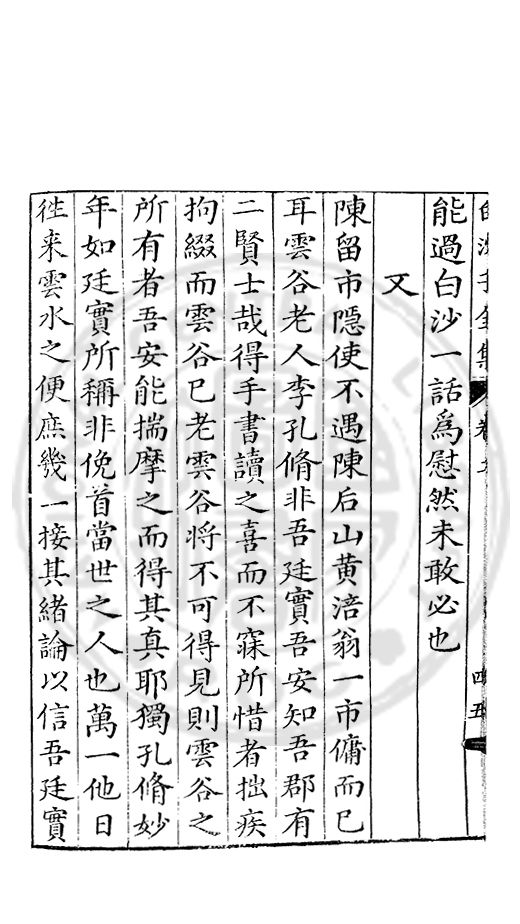 白沙子全集 卷 四五
能過白沙一話爲慰然未敢必也
又
陳留市隠使不遇陳后山黄涪翁一市傭而已
耳雲谷老人李孔脩非吾廷實吾安知吾郡有
二賢士哉得手書讀之喜而不寐所惜者拙疾
拘綴而雲谷已老雲谷將不可得見則雲谷之
所有者吾安能揣摩之而得其真耶獨孔脩妙
年如廷實所稱非俛首當世之人也萬一他日
徃来雲水之便庶幾一接其緒論以信吾廷實